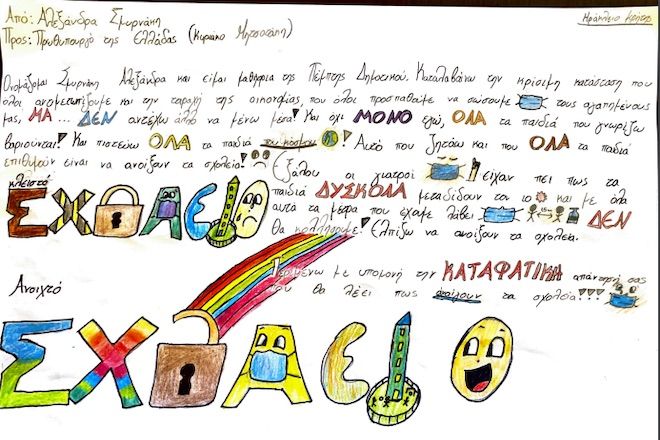 Από: Αλεξάνδρα Σμυρνάκη
Ηράκλειο Κρήτης
Προς: Πρωθυπουργό της Ελλάδας (Κυριάκο Μητσοτάκη)
Ονομάζομαι Σμυρνάκη Αλεξάνδρα και είμαι μαθήτρια της Πέμπτης Δημοτικού. Καταλαβαίνω την κρίσιμη κατάσταση που
όλοι αντιμετωπίζουμε και την ταραχή της οικονομίας, που όλοι προσπαθείτε να σώσουμε τους αγαπημένους
μας, ΜΑ ... ΔΕΝ αντέχω άλλο να μένω μέσα! Και όχι ΜΟΝΟ εγώ, ΟΛΑ τα παιδιά που γνωρίζω
βαριούνται! Και πιστεύω ΟΛΑ τα παιδιά του κόσμου! Αυτό που ζητάω και που ΟΛΑ τα παιδιά
επιθυμούν είναι να ανοίξουν τα σχολεία! Εξάλλου οι γιατροί είχαν πει πως τα
κλειστό
παιδιά ΔΥΣΚΟΛΑ μεταδίδουν τον ιό και με όλα
ΣΧΟΛΕΙΟ
αυτά τα μέτρα που έχουμε λάβει ΔΕΝ
θα κολλήσουμε! Ελπίζω να ανοίξουν τα σχολεία.
Περιμένω με υπομονή την ΚΑΤΑΦΑΤΙΚΗ απάντησή σας
Ανοιχτό
που θα λέει πως ανοίγουν τα σχολεία!!!
ΣΧΟΛΕΙΟ